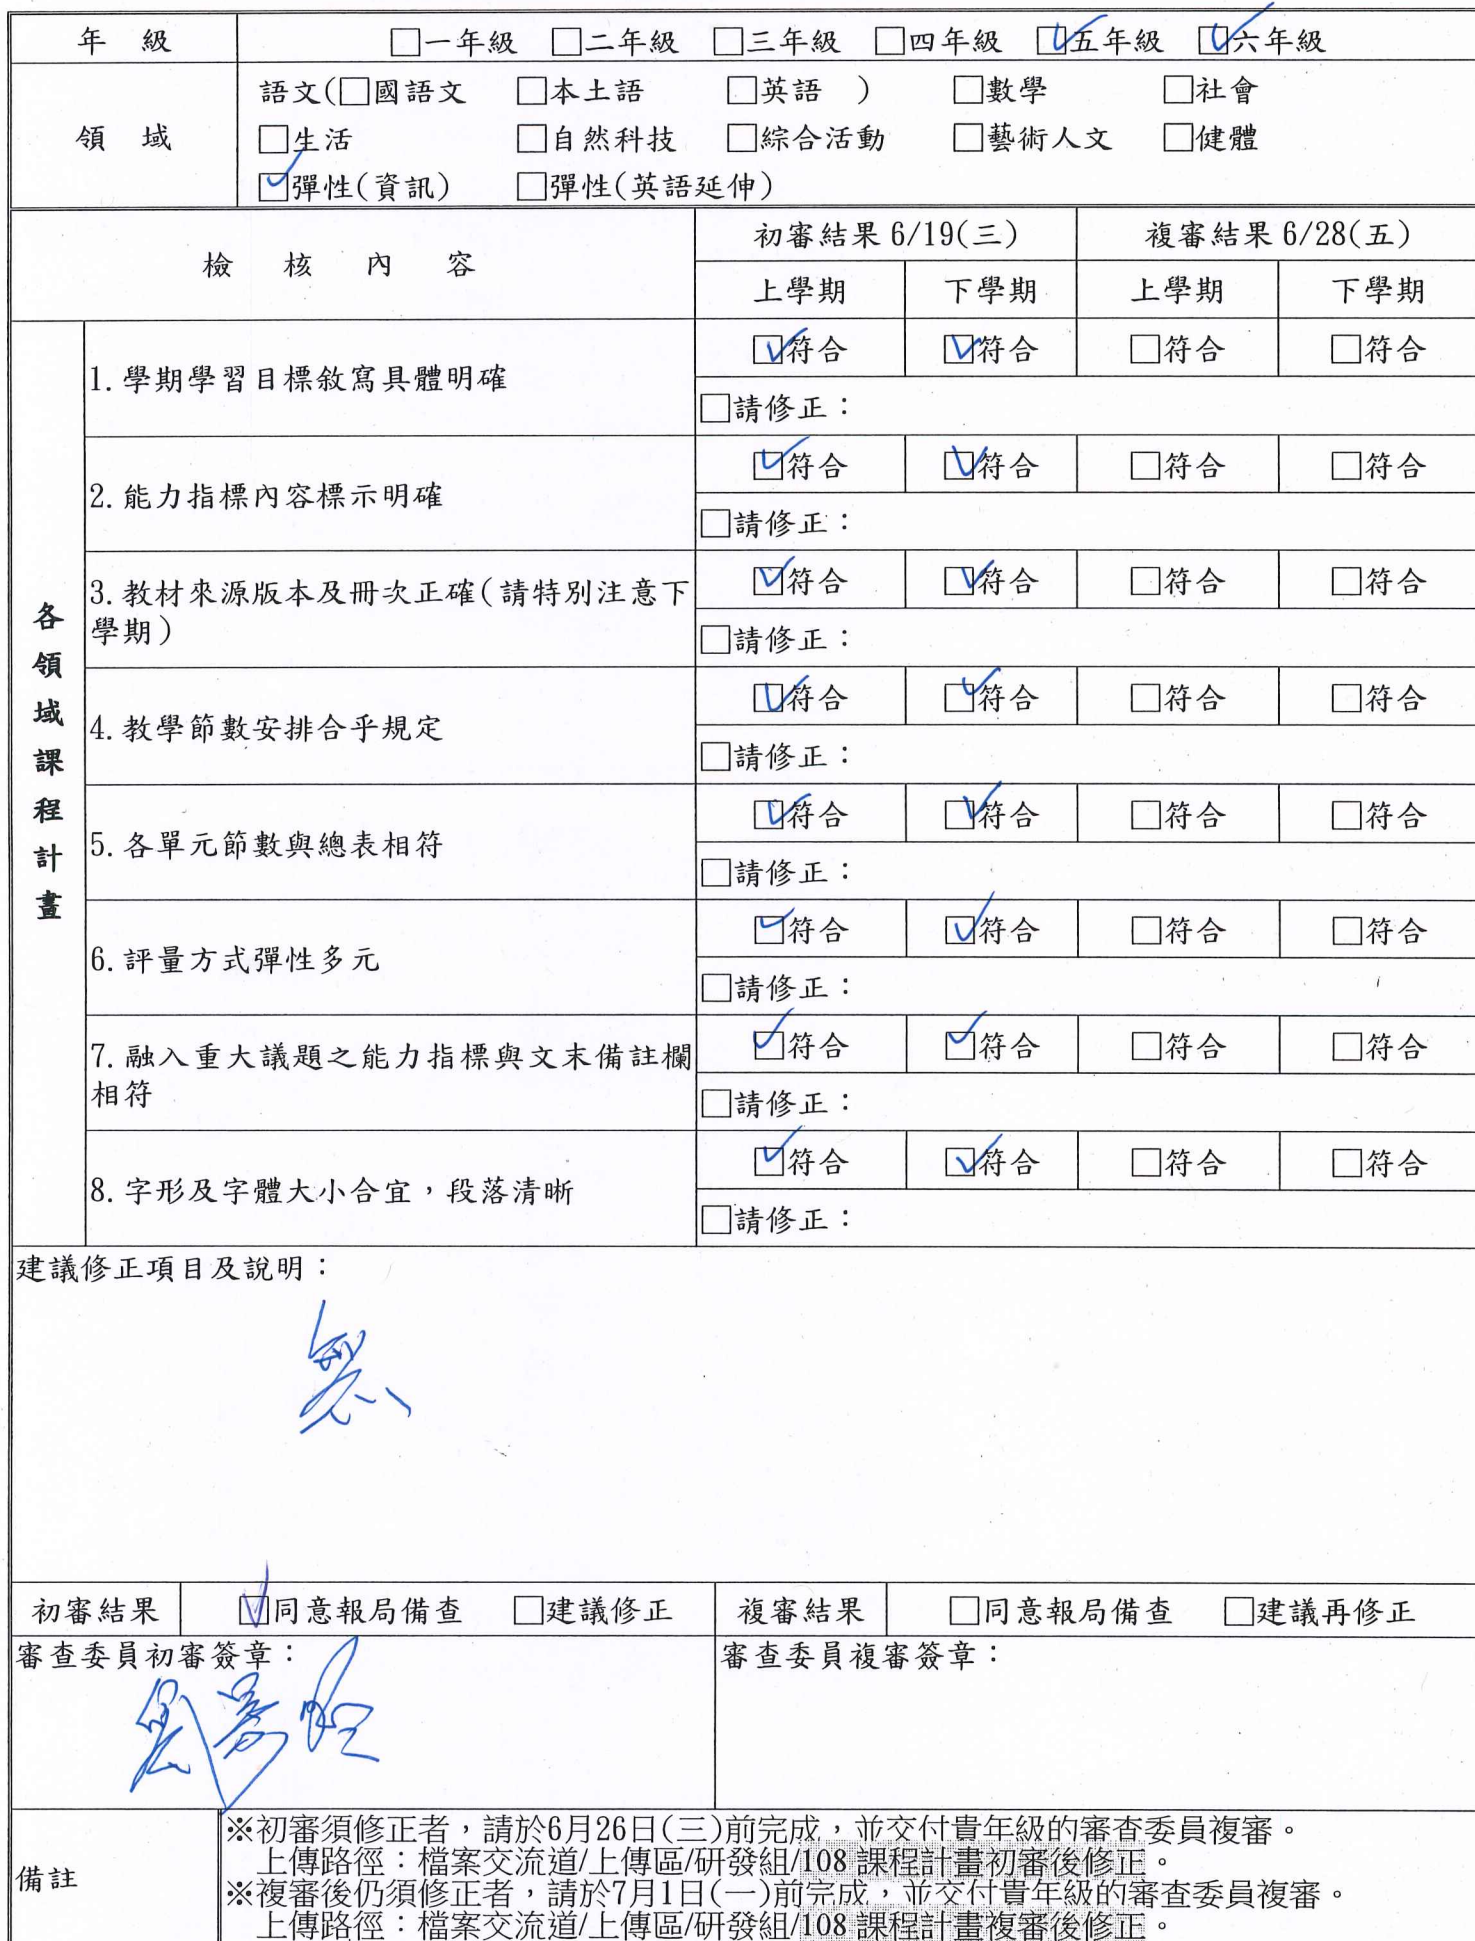 年 級 □一年級 □二年級 □三年級 □四年級 ☑五年級 ☑六年級
領 域
語文(□國語文 □本土語 □英語 ) □數學 □社會
□生活 □自然科技 □綜合活動 □藝術人文 □健體
☑彈性(資訊) □彈性(英語延伸)
檢 核 內 容
初審結果 6/19(三) 複審結果 6/28(五)
上學期 下學期 上學期 下學期
各領域課程計畫
1.學期學習目標敘寫具體明確
☑符合 ☑符合 □符合 □符合
□請修正：
2.能力指標內容標示明確
☑符合 ☑符合 □符合 □符合
□請修正：
3.教材來源版本及冊次正確(請特別注意下
學期)
☑符合 ☑符合 □符合 □符合
□請修正：
4.教學節數安排合乎規定
☑符合 ☑符合 □符合 □符合
□請修正：
5.各單元節數與總表相符
☑符合 ☑符合 □符合 □符合
□請修正：
6.評量方式彈性多元
☑符合 ☑符合 □符合 □符合
□請修正：
7.融入重大議題之能力指標與文末備註欄
相符
☑符合 ☑符合 □符合 □符合
□請修正：
8.字形及字體大小合宜，段落清晰
☑符合 ☑符合 □符合 □符合
□請修正：
建議修正項目及說明：
無
初審結果 ☑同意報局備查 □建議修正 複審結果 □同意報局備查 □建議再修正
審查委員初審簽章： 審查委員複審簽章：
備註
※初審須修正者，請於6月26日(三)前完成，並交付貴年級的審查委員複審。
上傳路徑：檔案交流道/上傳區/研發組/108 課程計畫初審後修正。
※複審後仍須修正者，請於7月1日(一)前完成，並交付貴年級的審查委員複審。
上傳路徑：檔案交流道/上傳區/研發組/108 課程計畫複審後修正。